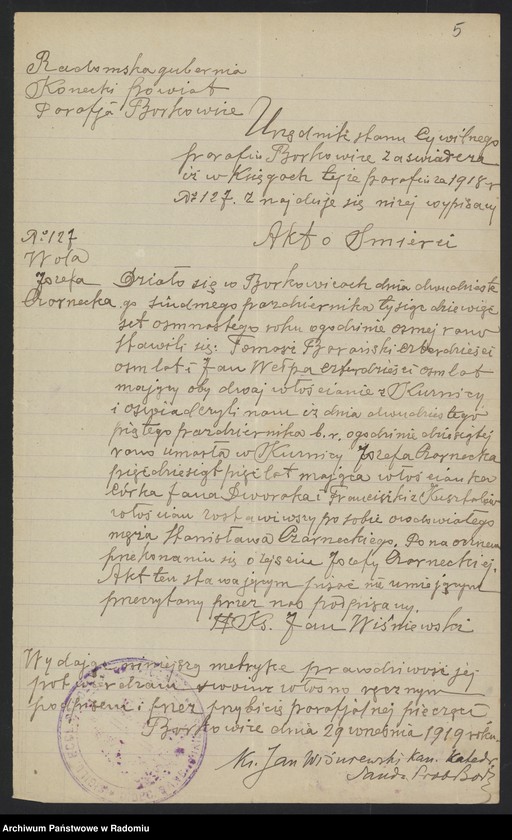 5
Radomska gubernia
Konecki powiat
Parafja Borkowice
Urzędnik stanu Cywilnego
parafii Borkowice zaświadcza
iż w Księgach tejże parafii za 1918 r
№ 127. znajduje się niżej wypisany
Akt o Śmierci
№ 127
Wola
Józefa
Czarnecka
Działo się w Borkowicach dnia dwudzieste
go siódmego października tysiąc dziewięć
set osmnastego roku o godzinie osmej rano
Stawili się: Tomasz Barański czterdzieści
osm lat i Jan Wełpa czterdzieści osm lat
mający oby dwaj włościanie z
i oświadczyli nam iż dnia dwudziestego
piątego października b.r. o godzinie dziesiątej
rano umarła w Józefa Czarnecka
pięćdziesiąt pięć lat mająca włościanka
córka Jana Dworaka i Franciszki z
włościan zostawiwszy po sobie owdowiałego
męża Stanisława Czarneckiego. Po naocznem
przekonaniu się o zejściu Józefy Czarneckiej.
Akt ten stawającym pisać nie umiejącym
przeczytany przez nas podpisany.
Ks. Jan Wiśniewski
Wydając niniejszą metrykę prawdziwość jej
potwierdzam swoim własno ręcznym
podpisem i przez przybicie parafjalnej pieczęci
Borkowice dnia 29 września 1919 roku.
Ks. Jan Wiśniewski Kan. Katedr.
Sando. Prob. Bork.
Archiwum Państwowe w Radomiu